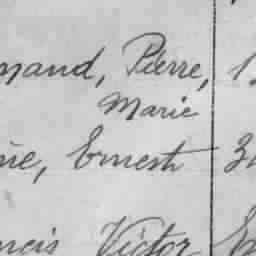 mand, Pierre,
Marie
ie, Ernest
ncis Victor